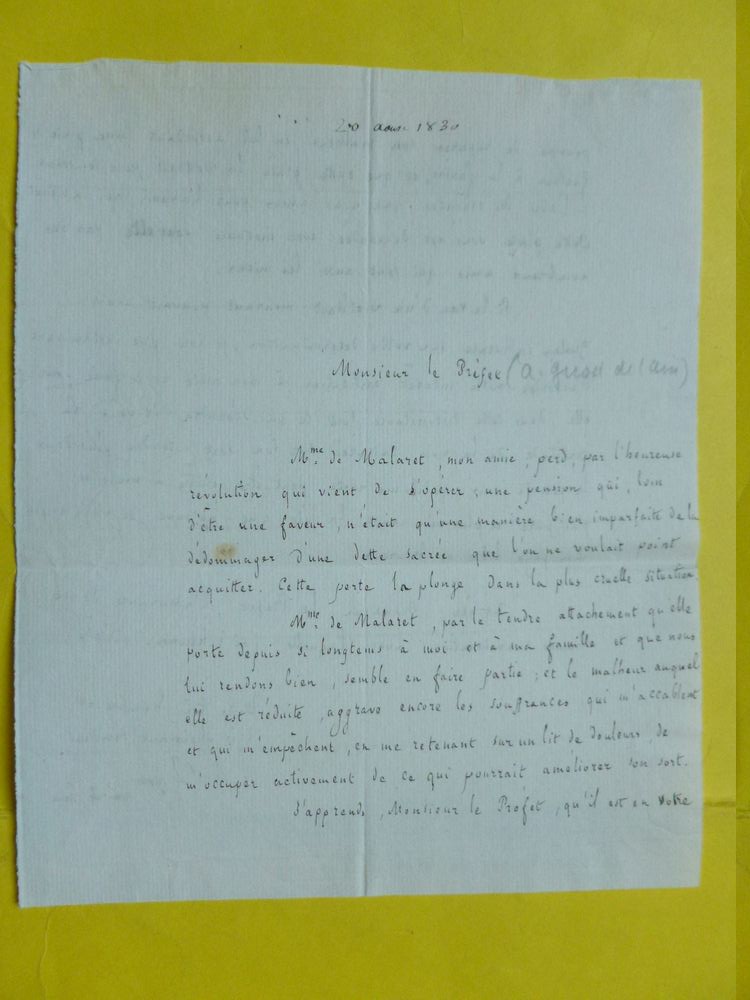 20 aous. 1830
Monsieur le Préfet (a. de l'Ain)
M.me de Malaret, mon amie, perd, par l'heureuse
révolution qui vient de s'opérer, une pension qui, loin
d'être une faveur, n'était qu'une manière bien imparfaite de la
dédommager d'une dette sacrée que l'on ne voulait point
acquitter. Cette perte la plonge dans la plus cruelle situation.
M.me de Malaret, par le tendre attachement qu'elle
porte depuis si longtems à moi et à ma famille et que nous
lui rendons bien, semble en faire partie; et le malheur auquel
elle est réduite, aggrave encore les souffrances qui m'accablent
et qui m'empêchent, en me retenant sur un lit de douleurs, de
m'occuper activement de ce qui pourrait améliorer son sort.
J'apprends, Monsieur le Préfet, qu'il est en votre